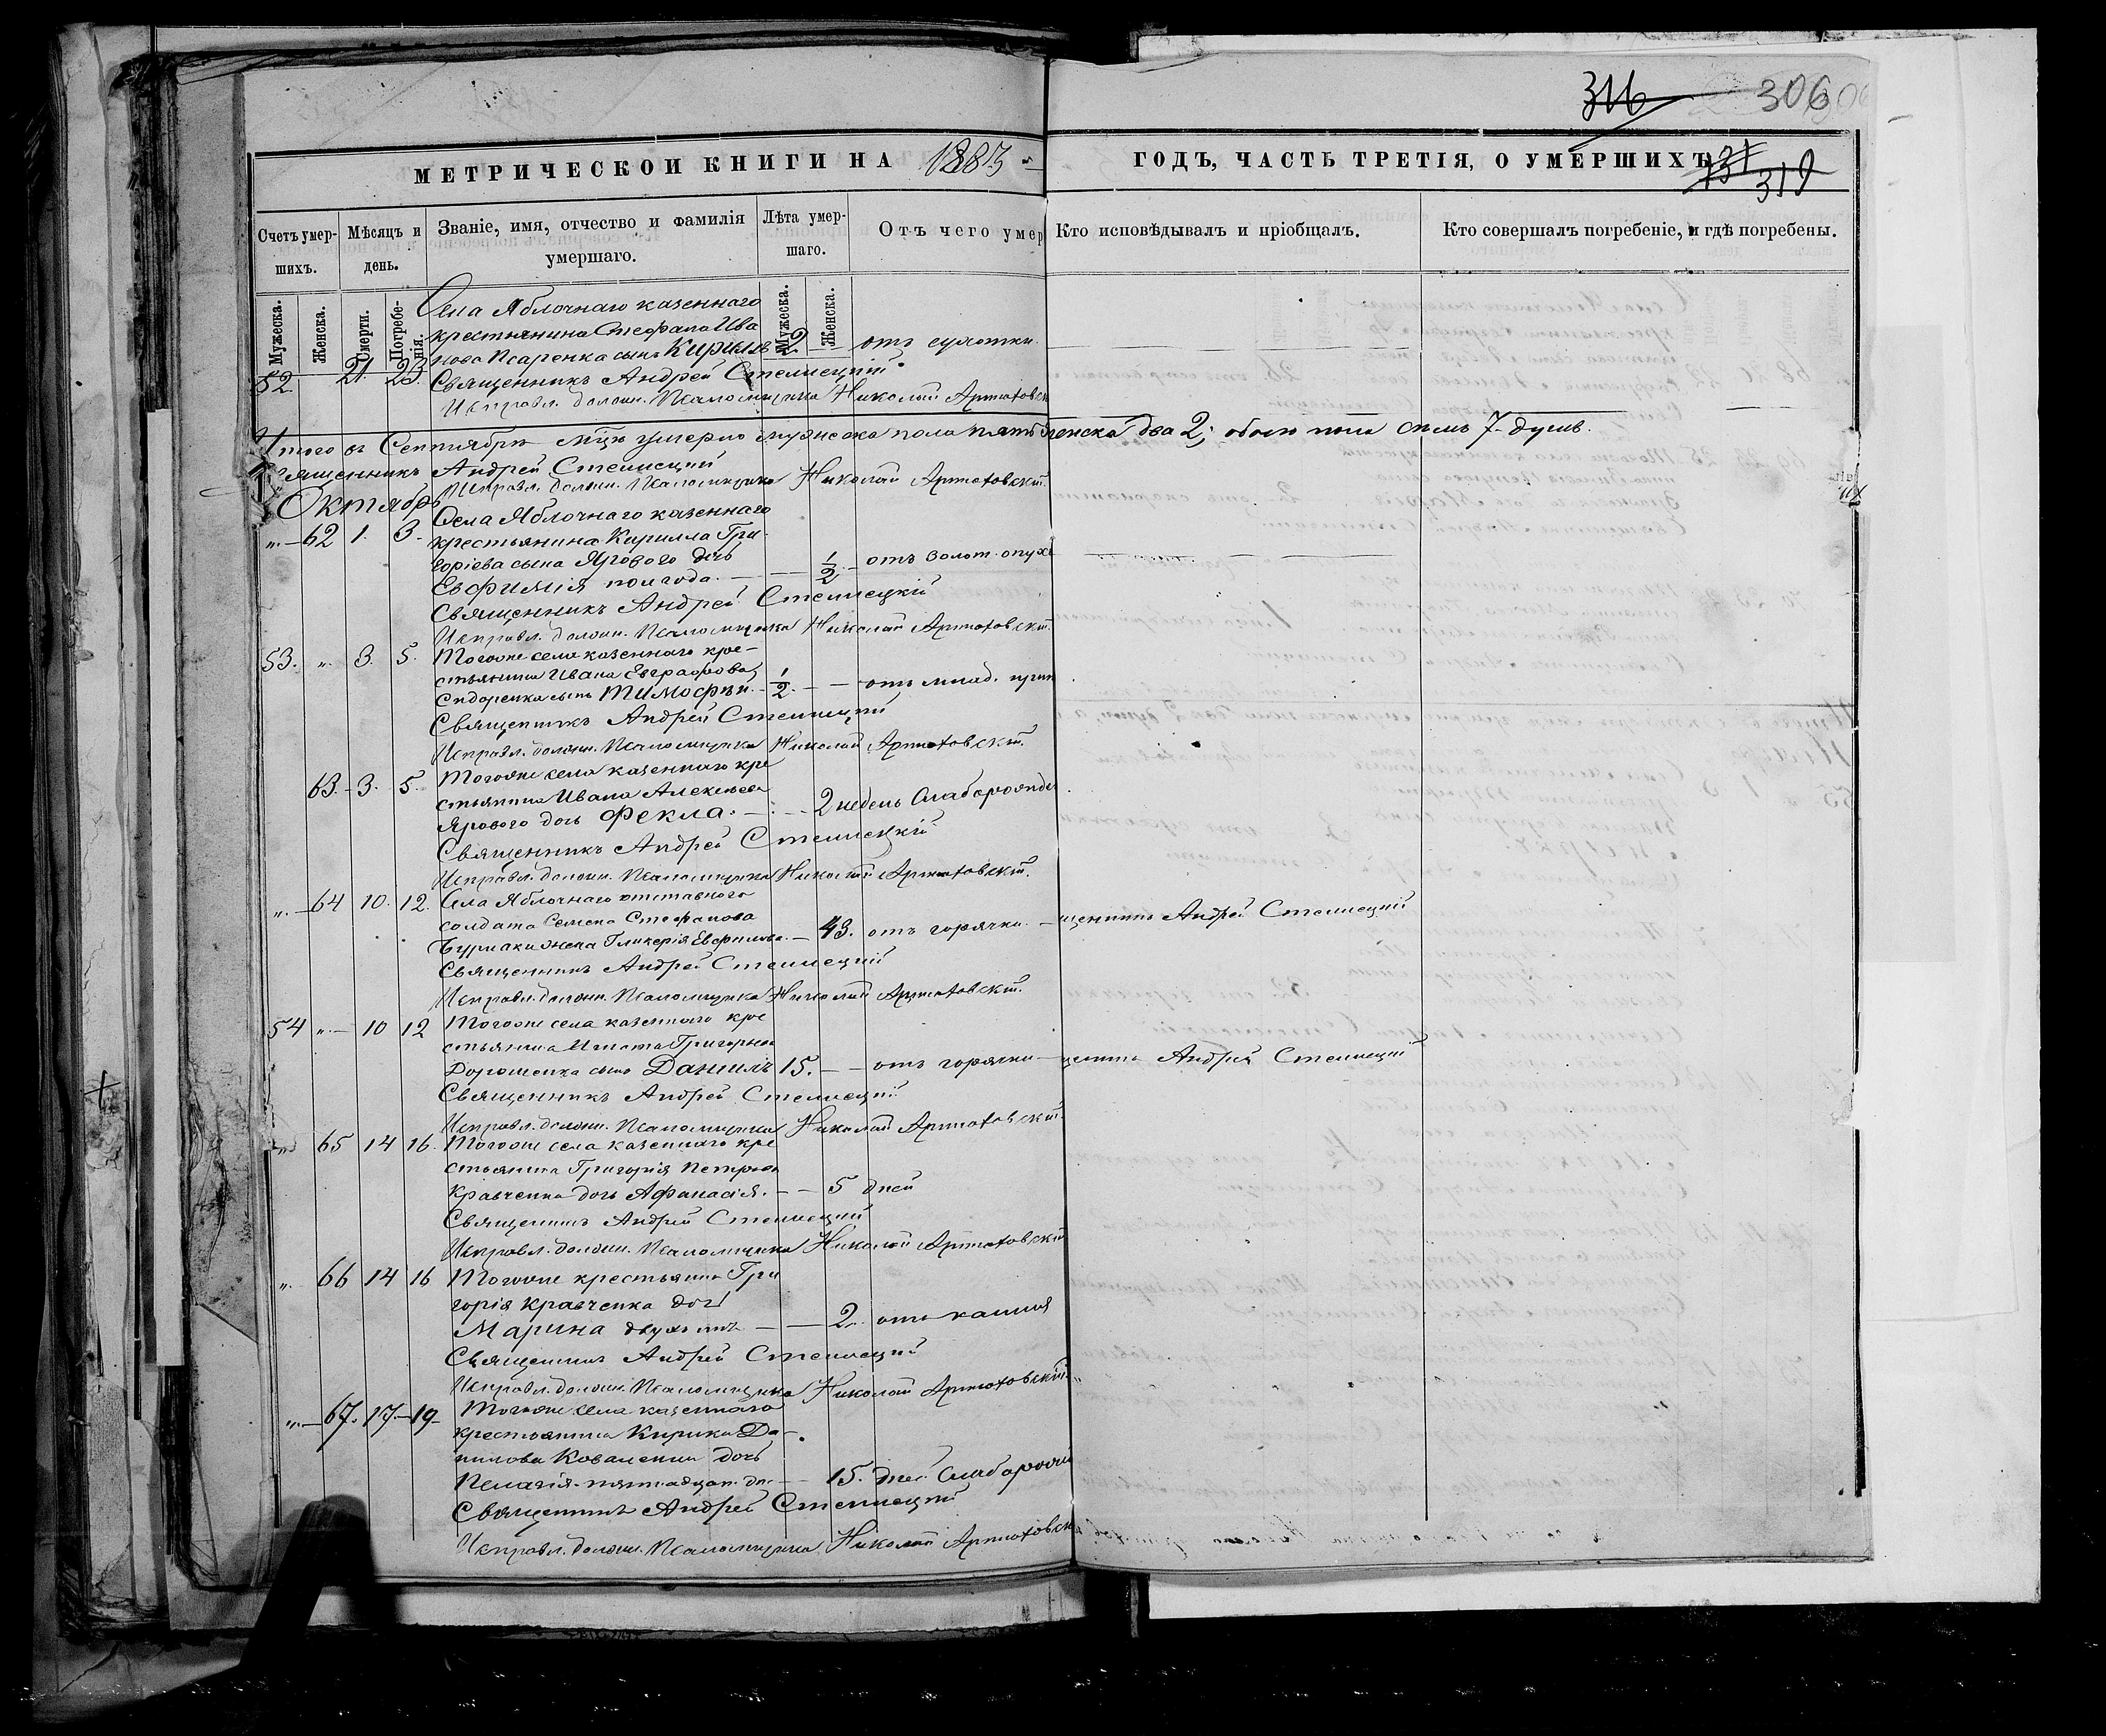 316 306
МЕТРИЧЕСКОЙ КНИГИ НА 1883 ГОДЪ, ЧАСТЬ ТРЕТІЯ, О УМЕРШИХЪ
319
Счетъ умершихъ. Мѣсяцъ и день. Званіе, имя, отчество и фамилія умершаго. Лѣта умершаго. Отъ чего умер Кто исповѣдывалъ и пріобщалъ. Кто совершалъ погребеніе, и гдѣ погребены.
Мужеска. Женска. Смерти. Погребенія. Мужеска. Женска.
Села Яблочнаго казеннаго
крестьянина Стефана Ива
нова Писаренка сынъ Кириллъ 2 — отъ сухотки.
52. 21. 23. Священникъ Андрей Стеллецкій
Исправл. должн. Псаломщика Николай Артюховск
Итого въ Сентябрѣ м-цѣ умерло мужеска пола пять женска два 2; обоего пола семь 7 душъ.
Священникъ Андрей Стеллецкій
Исправл. должн. Псаломщика Николай Артюховскій.
Октябрь
Села Яблочнаго казеннаго
„ — 62 1. 3. крестьянина Кирилла Гри-
горіева сына Ярового дочь
Евфимія полгода. — — 1/2 — отъ золот. опухо
Священникъ Андрей Стеллецкій
Исправл. должн. Псаломщика Николай Артюховскій.
53. „ 3. 5. Тогоже села казеннаго кре-
стьянина Ивана Евграфова
Сидоренка сынъ Тимофѣй. — 1/2. — — отъ млад. прип
Священникъ Андрей Стеллецкій
Исправл. должн. Псаломщика Николай Артюховскій.
63. — 3. 5. Тогоже села казеннаго кре
стьянина Ивана Алексѣева
Ярового дочь Фекла. — 2 недель Слаборожде
Священникъ Андрей Стеллецкій
Исправл. должн. Псаломщика Николай Артюховскій.
„ — 64 10. 12. Села Яблочнаго отставного
солдата Семена Стефанова
Бурлаки жена Гликерія Евфимова. — 43. отъ горячки. — щенникъ Андрей Стеллецкій
Священникъ Андрей Стеллецкій
Исправл. должн. Псаломщика Николай Артюховскій.
54 „ — 10 12 Тогоже села казеннаго кре
стьянина Игната Григорьева
Дорошенка сынъ Даниилъ 15. — — отъ горячки — щенникъ Андрей Стеллецкій
Священникъ Андрей Стеллецкій
Исправл. должн. Псаломщика Николай Артюховскій.
„ 65 14 16. Тогоже села казеннаго кре
стьянина Григорія Петрова
Кравченка дочь Афанасія. — — 5 дней
Священникъ Андрей Стеллецкій
Исправл. должн. Псаломщика Николай Артюховскій
„ 66 14 16 Тогоже крестьянина Гри
горія Кравченка дочь
Марина двухъ лѣтъ — — 2. отъ кашля
Священникъ Андрей Стеллецкій
Исправл. должн. Псаломщика Николай Артюховскій.
„ — 67. 17. — 19. Тогоже села казеннаго
крестьянина Кирика Да-
нилова Коваленка дочь
Пелагія пятнадцат. дн. — 15. дней Слаборожд
Священникъ Андрей Стеллецкій
Исправл. должн. Псаломщика Николай Артюховск